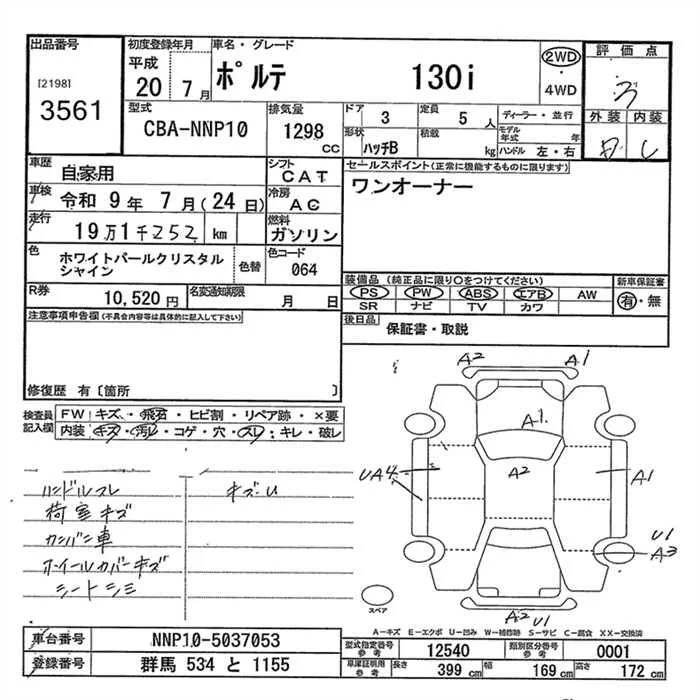 出品番号
[2198]
3561
初度登録年月
平成
20 7月
車名・グレード
ポルテ 130i
2WD
・
4WD
評価点
3
外装 内装
型式
CBA-NNP10
排気量
1298 CC
ドア 3
定員 5 人
ディーラー・並行
形状 ハッチB
積載 kg
モデル年式 年
ハンドル 左・右
車歴 自家用
シフト CAT
車検 令和 9年 7月(24日)
冷房 AC
走行 19万1千252 km
燃料 ガソリン
色 ホワイトパールクリスタル
シャイン
色替
色コード 064
R券 10,520円
名変通知期限 月 日
セールスポイント(正常に機能するものに限ります)
ワンオーナー
装備品(純正品に限り〇をつけてください)
新車保証書
PS PW ABS エアB AW
SR ナビ TV カワ
有・無
後日品 保証書・取説
注意事項申告欄(不具合内容等は具体的に記入して下さい)
修復歴 有〔箇所 〕
検査員
記入欄
FW キズ・飛石・ヒビ割・リペア跡・×要
内装 キズ・汚レ・コゲ・穴・スレ・キレ・破レ
ハンドルスレ
荷室キズ
カンバン車
ホイールカバーキズ
シートシミ
キズ・U
A2
A1
A1
A2
UA4
A1
U1
A3
A2 U1
スペア
A-キズ E-エクボ U-凹み W-補修跡 S-サビ C-腐食 XX-交換済
車台番号 NNP10-5037053
登録番号 群馬 534 と 1155
型式指定番号
参考
12540
類別区分番号
参考
0001
車庫証明用
参考
長さ 399cm
幅 169cm
高さ 172cm